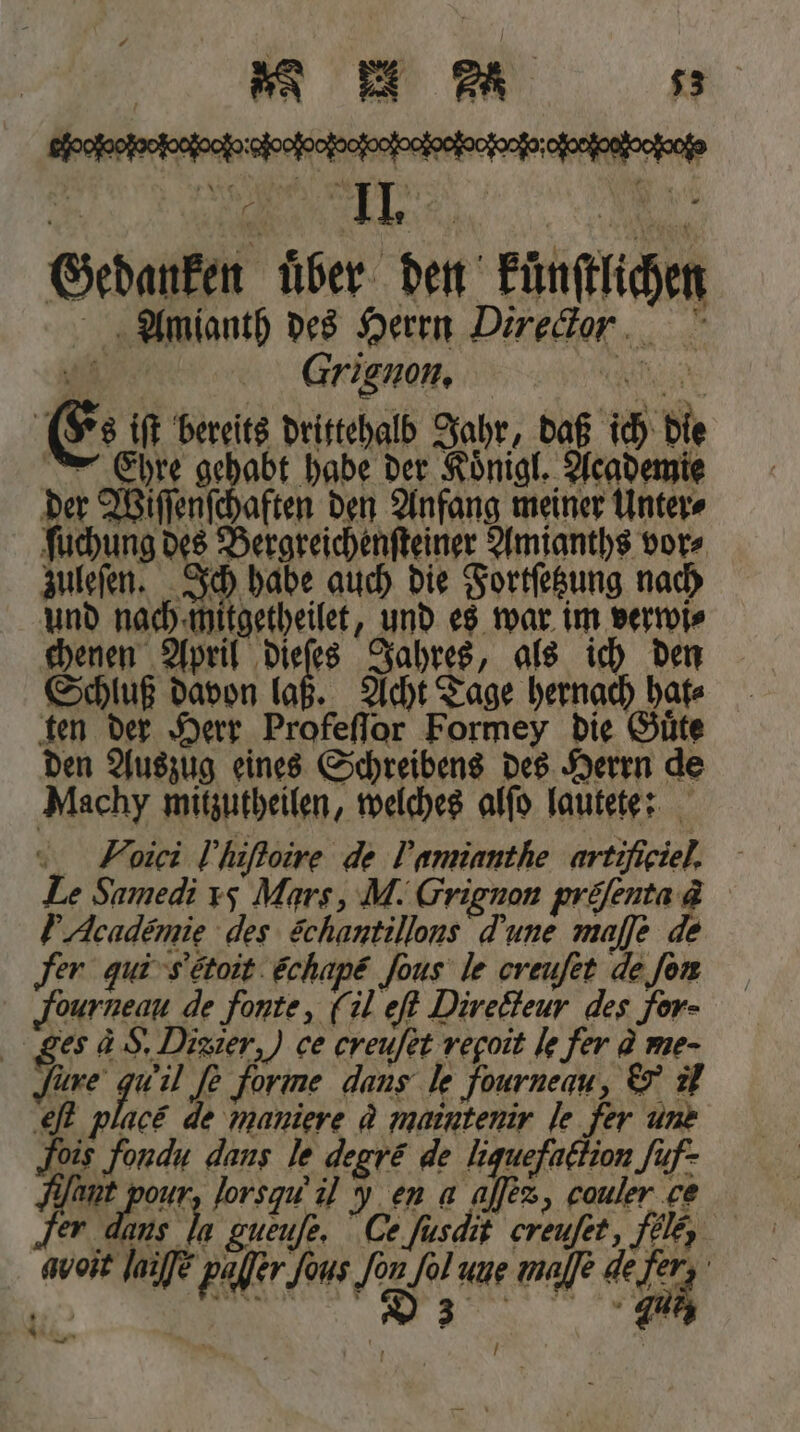 53
II.
Gedanken uͤber den kuͤnſtlichen
Amianth des Herrn Director
Grignon.
Es iſt bereits drittehalb Jahr, daß ich die
Ehre gehabt habe der Koͤnigl. Academie
der Wiſſenſchaften den Anfang meiner Unter⸗
ſuchung des Bergreichenſteiner Amianths vor⸗
zuleſen. Ich habe auch die Fortſetzung nach
und nach mitgetheilet, und es war im verwi⸗
chenen April dieſes Jahres, als ich den
Schluß davon laß. Acht Tage hernach hat⸗
ten der Herr Profeſſor Formey die Guͤte
den Auszug eines Schreibens des Herrn de
Machy mitzutheilen, welches alſo lautete:
Voici l'hiſtoire de l'amianthe artificiel.
Le Samedi 15 Mars, M. Grignon préſenta à
l'Académie des échantillons d'une maſſe de
fer qui s'étoit échapé ſous le creuſet de ſon
fourneau de fonte, (il eſt Directeur des for-
ges à S. Dizier,) ce creuſet reçoit le fer à me-
ſure qu'il ſe forme dans le fourneau, & il
eſt placé de maniere à maintenir le fer une
fois fondu dans le degré de liquefaction ſuf-
fiſant pour, lorsqu'il y en a aſſez, couler ce
fer dans la gueuſe. Ce ſusdit creuſet, félé,
avoit laiſſé paſſer ſous ſon ſol une maſſe de fer,
D 3 qui,